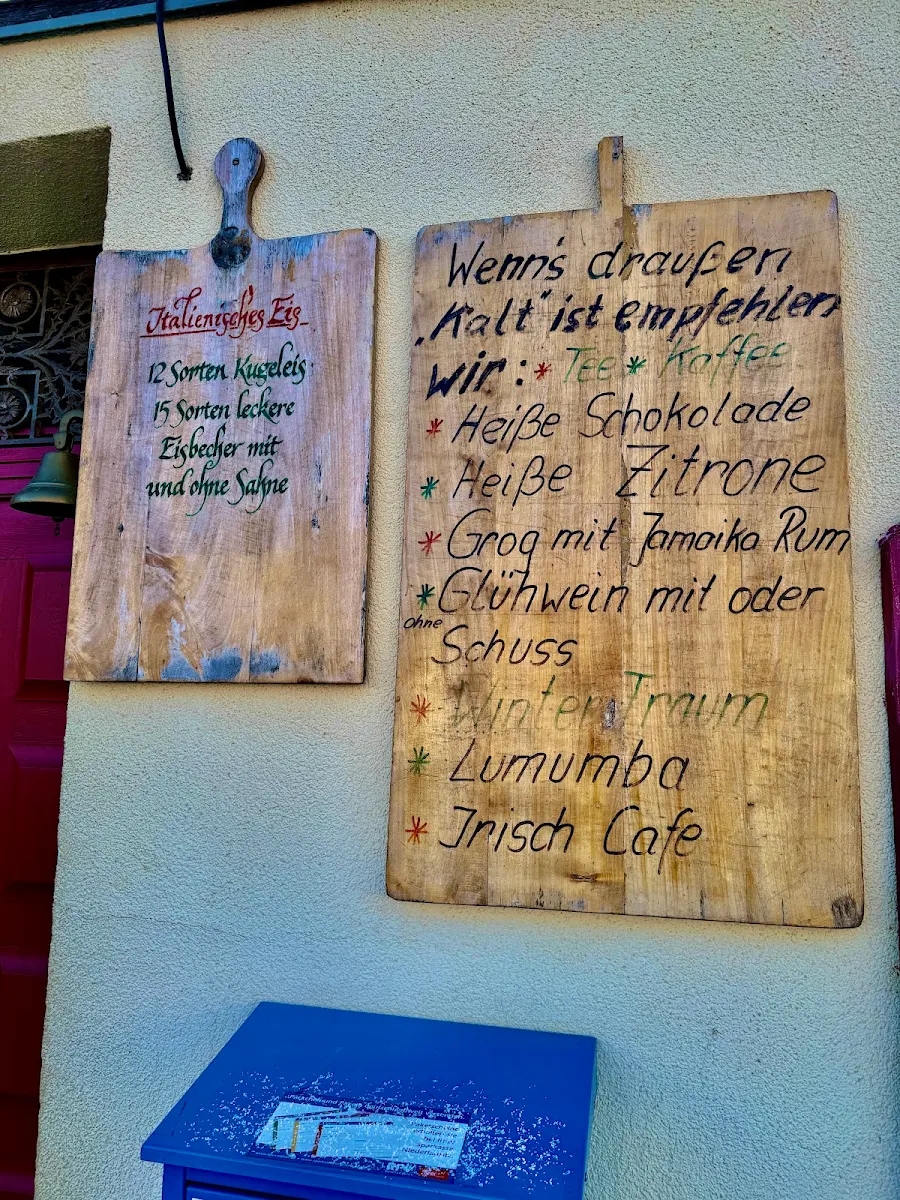 Italienisches Eis
12 Sorten Kugeleis
15 Sorten leckere
Eisbecher mit
und ohne Sahne
Wenn's draußen
„Kalt" ist empfehlen
wir: * Tee * Kaffee
* Heiße Schokolade
* Heiße Zitrone
* Grog mit Jamaika Rum
* Glühwein mit oder
ohne
Schuss
* Winter Traum
* Lumumba
* Irisch Cafe